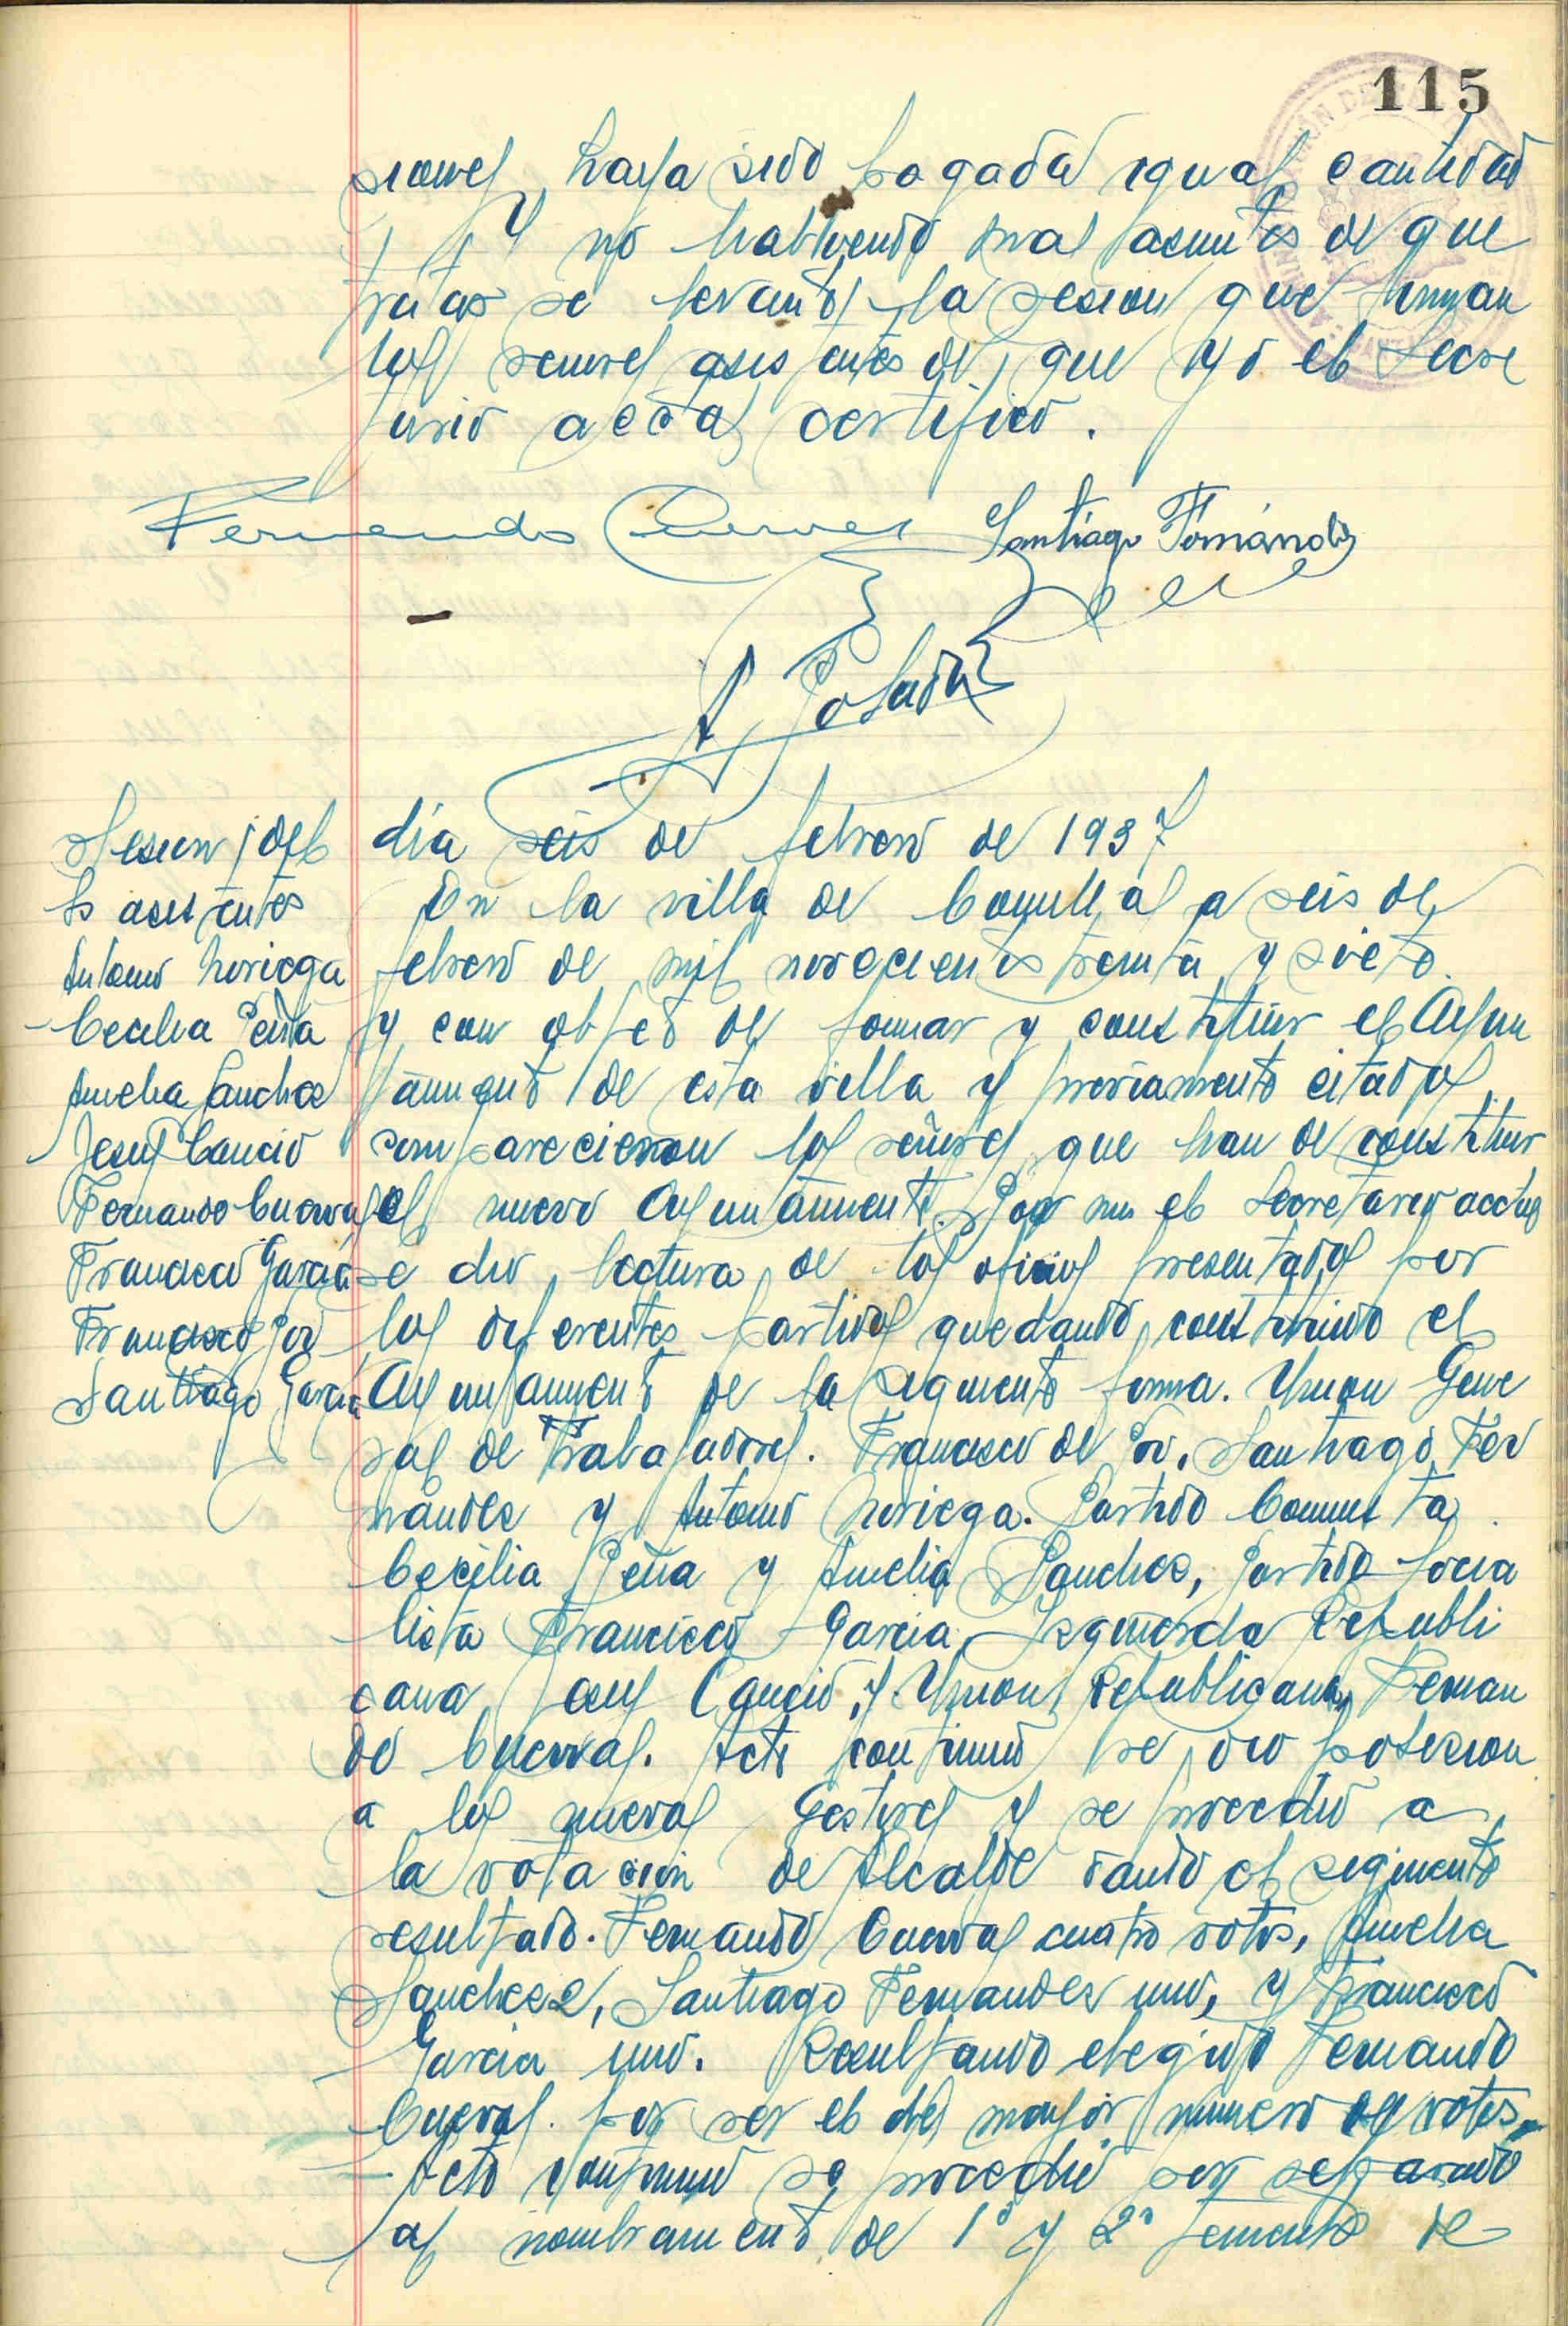 115
siones haya sido pagada igual cantidad
Y no habiendo mas asuntos de que
tratar se levantó la sesion que firman
los señores asistentes de que yo el Secre
tario acctal certifico.
Fernando Cuevas Santiago Fernández
A Posada
Sesion del día seis de febrero de 1937
Srs asistentes
Antonio Noriega
Cecilia Peña
Amelia Sanchez
Jesus Cancio
Fernando Cuevas
Francisco Garcia
Francisco Poo
Santiago Garcia
En la villa de Comillas a seis de
febrero de mil novecientos treinta y siete
y con objeto de formar y constituir el Ayun
tamiento de esta villa y previamente citados
comparecieron los señores que han de constituir
el nuevo Ayuntamiento. Por mi el Secretario acctal
se dio lectura de los oficios presentados por
los diferentes partidos quedando constituido el
Ayuntamiento de la siguiente forma. Union Gene
ral de Trabajadores. Francisco de Poo, Santiago Fer
nández y Antonio Noriega. Partido Comunista
Cecilia Peña y Amelia Sanchez, Partido Socia
lista Francisco Garcia, Izquierda Republi
cana Jesus Cancio, y Union Republicana, Fernan
do Cuevas. Acto continuo se dio posesion
a los nuevos Gestores y se procedio a
la votacion de Alcalde dando el siguiente
resultado. Fernando Cuevas cuatro votos, Amelia
Sanchez 2, Santiago Fernandez uno, y Francisco
Garcia uno. Resultando elegido Fernando
Cuevas por ser el del mayor numero de votos.
Acto continuo se procedio por separado
al nombramiento de 1º y 2º teniente de